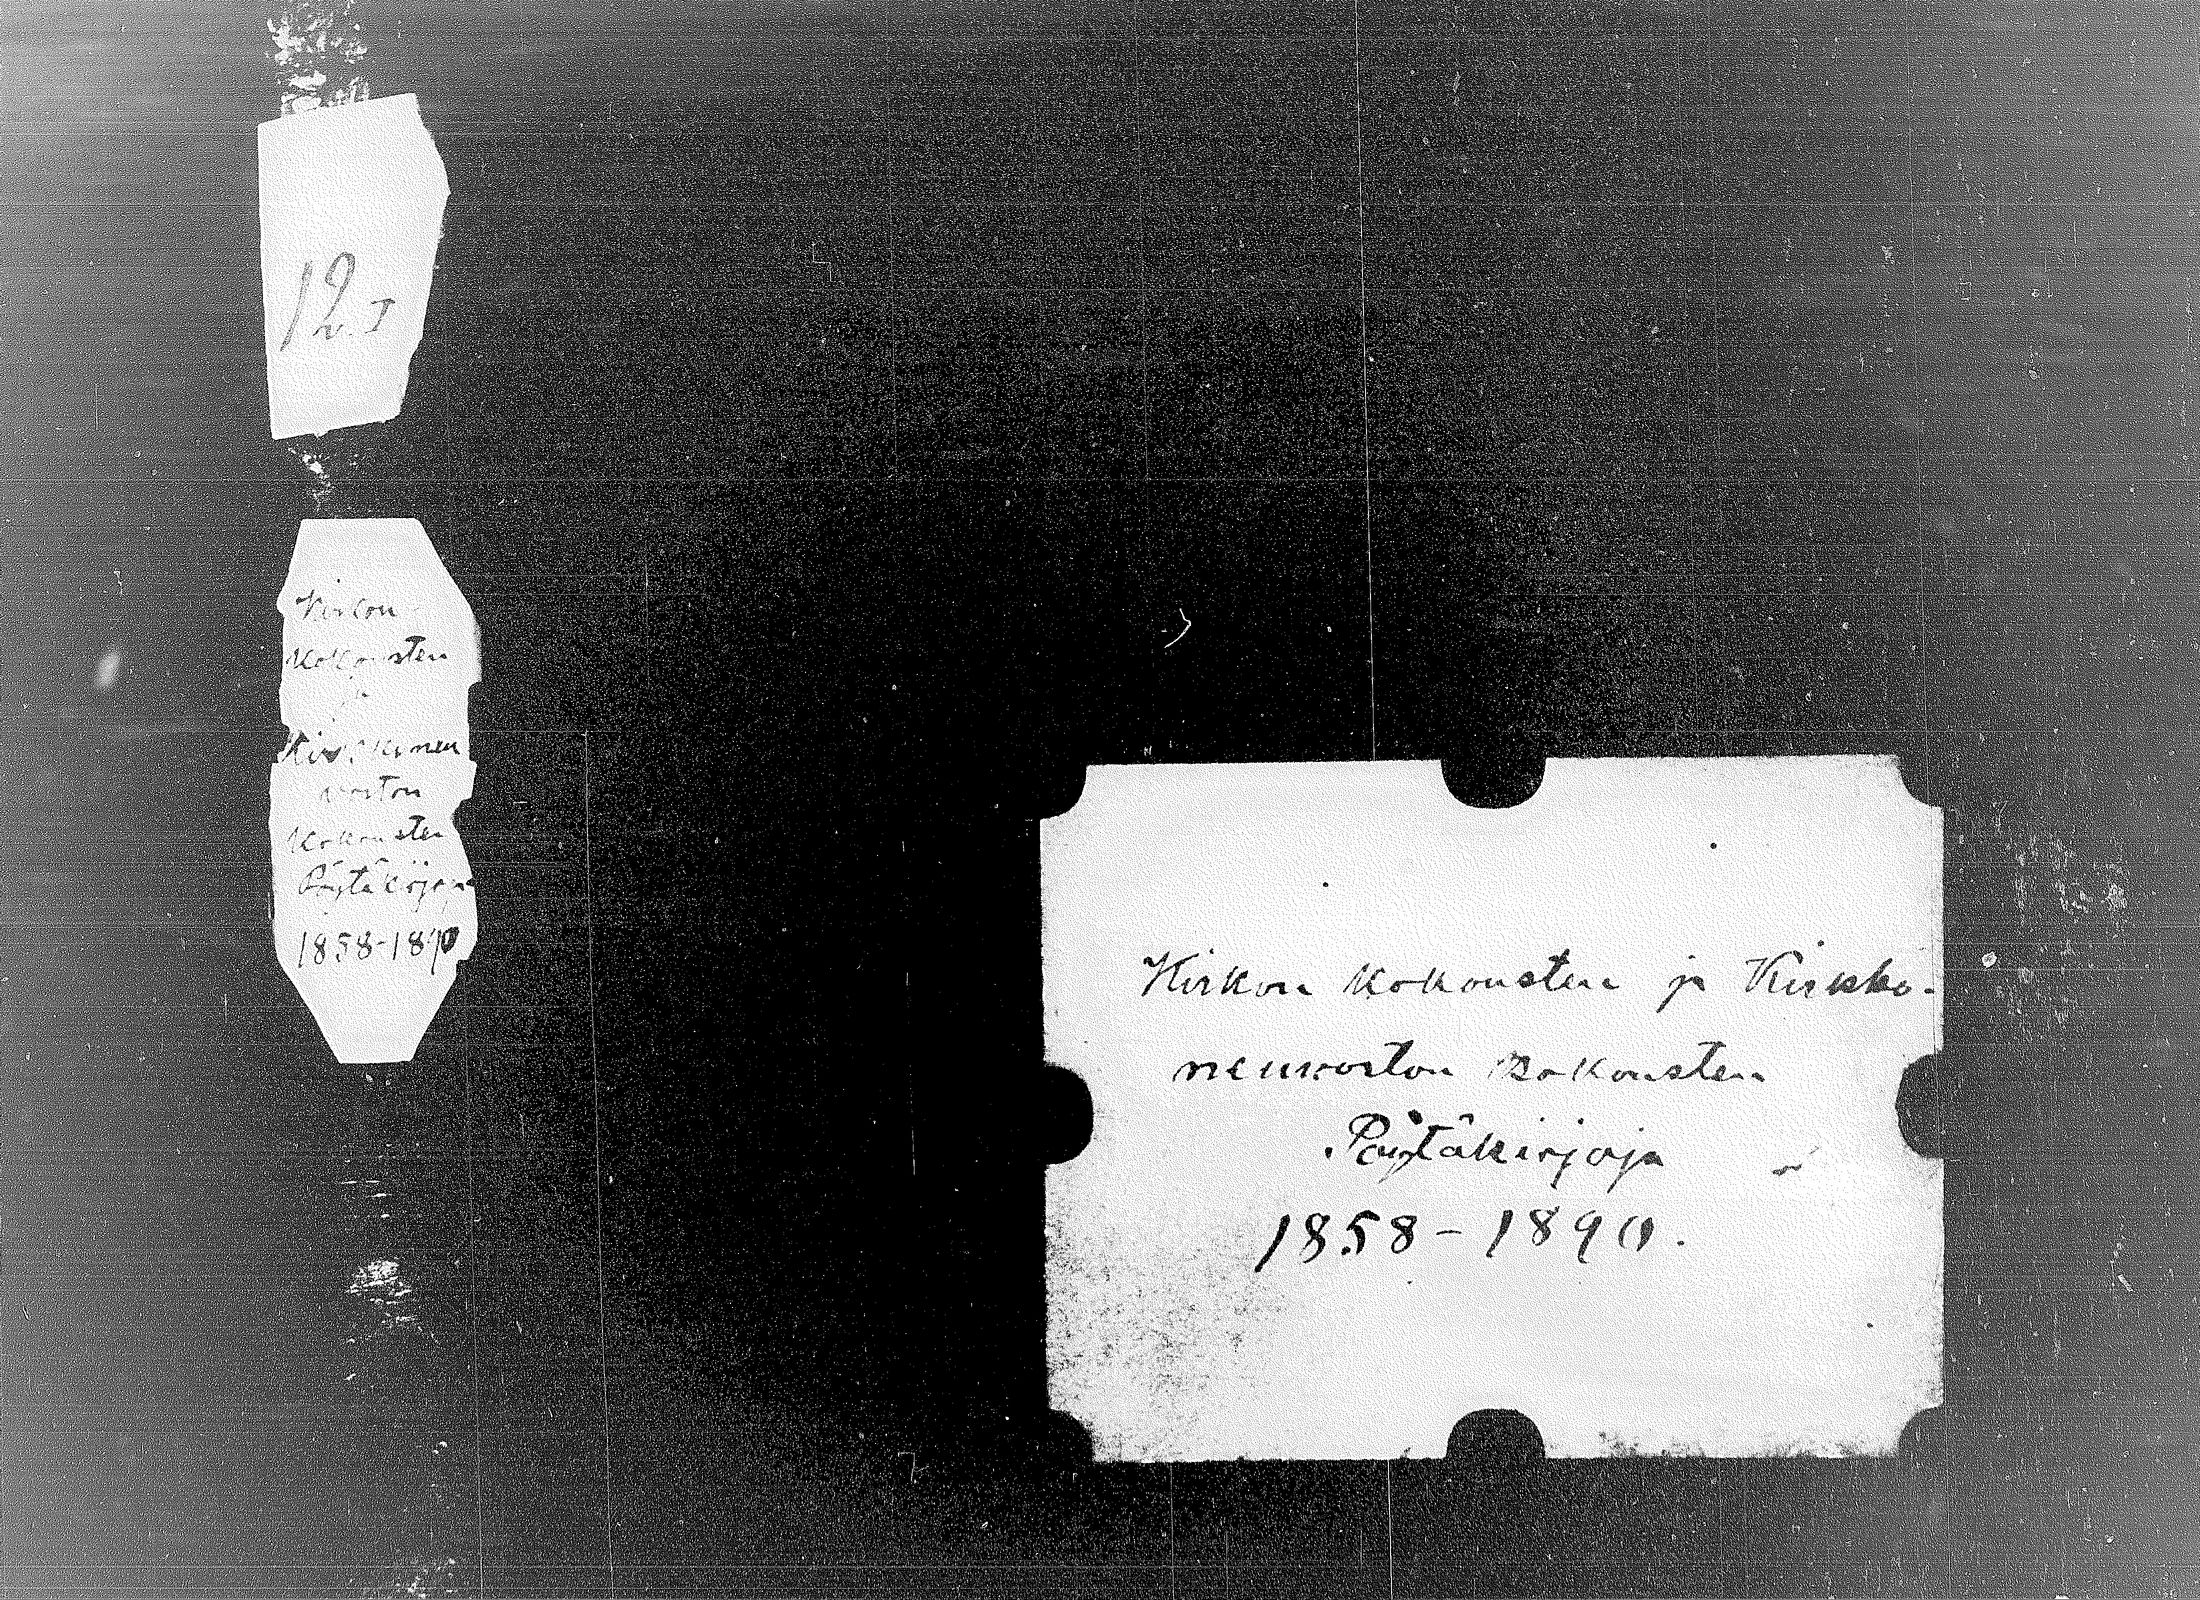 12
v. I
Kirkon
Kokousten
ja
Kirkkoneu
voston
Kokousten
Pöytäkirjoja
1858-1890
Kirkon Kokousten ja Kirkko-
neuvoston Kokousten
Pöytäkirjoja
1858-1890.